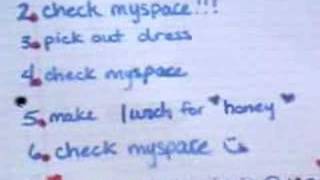 2. check myspace!!!
3. pick out dress
4. check myspace
5. make lunch for "honey"
6. check myspace